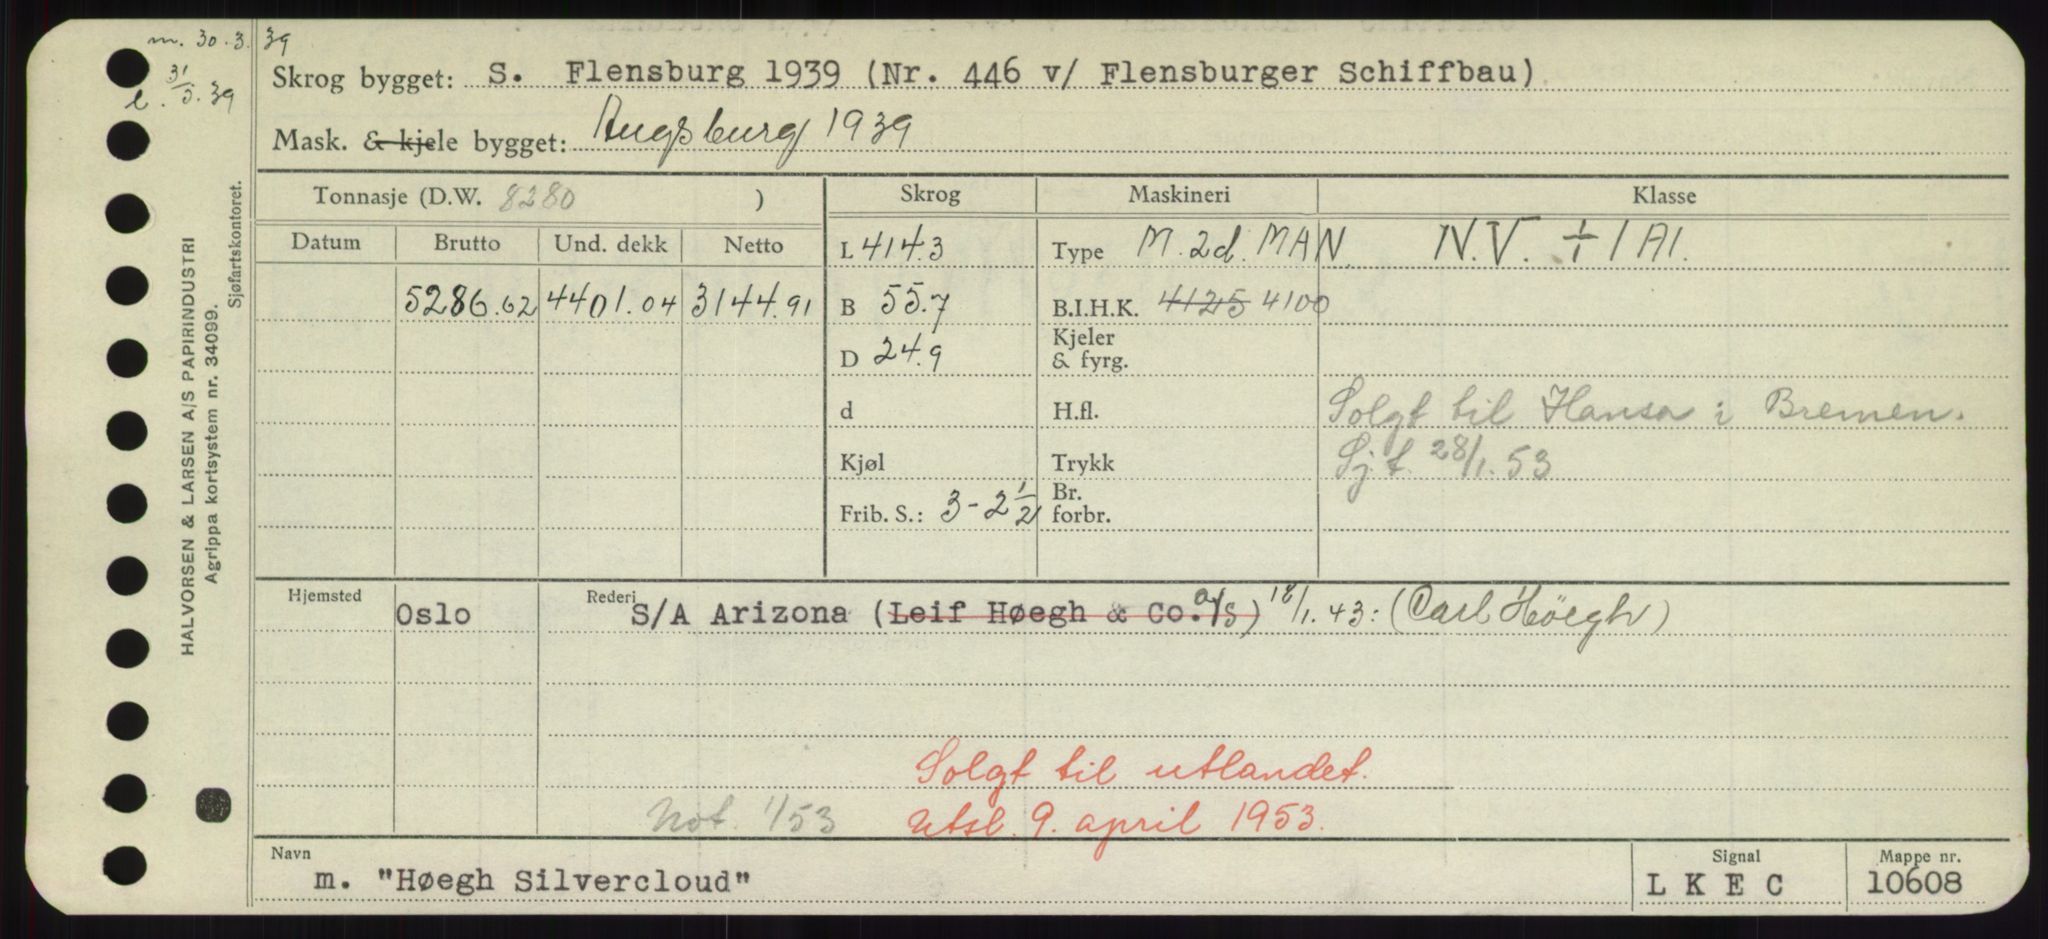 m. 30.3.39
l. 31/3.39
Skrog bygget: S. Flensburg 1939 (Nr. 446 v/ Flensburger Schiffbau)
Mask. & kjele bygget: Augsburg 1939
Tonnasje (D.W. 8280 )
Skrog
Maskineri
Klasse
Datum
Brutto
Und. dekk
Netto
L 414.3
Type M. 2d. MAN.
N.V. ⸭ 1A1.
5286.62
4401.04
3144.91
B 55.7
B.I.H.K. 4125 4100
D 24.9
Kjeler
& fyrg.
d
H.fl.
Solgt til Hansa i Bremen.
Kjøl
Trykk
Sj.t. 28/1.53
Frib. S.: 3-2 1/2
Br.
forbr.
Hjemsted
Oslo
Rederi
S/A Arizona (Leif Høegh & Co. a/S) 18/1.43: (Carl Höegh)
Solgt til utlandet.
Not. 1/53
Utsl. 9. april 1953.
Navn
m. "Høegh Silvercloud"
Signal
L K E C
Mappe nr.
10608
HALVORSEN & LARSEN A/S PAPIRINDUSTRI
Agrippa kortsystem nr. 34099.
Sjøfartskontoret.